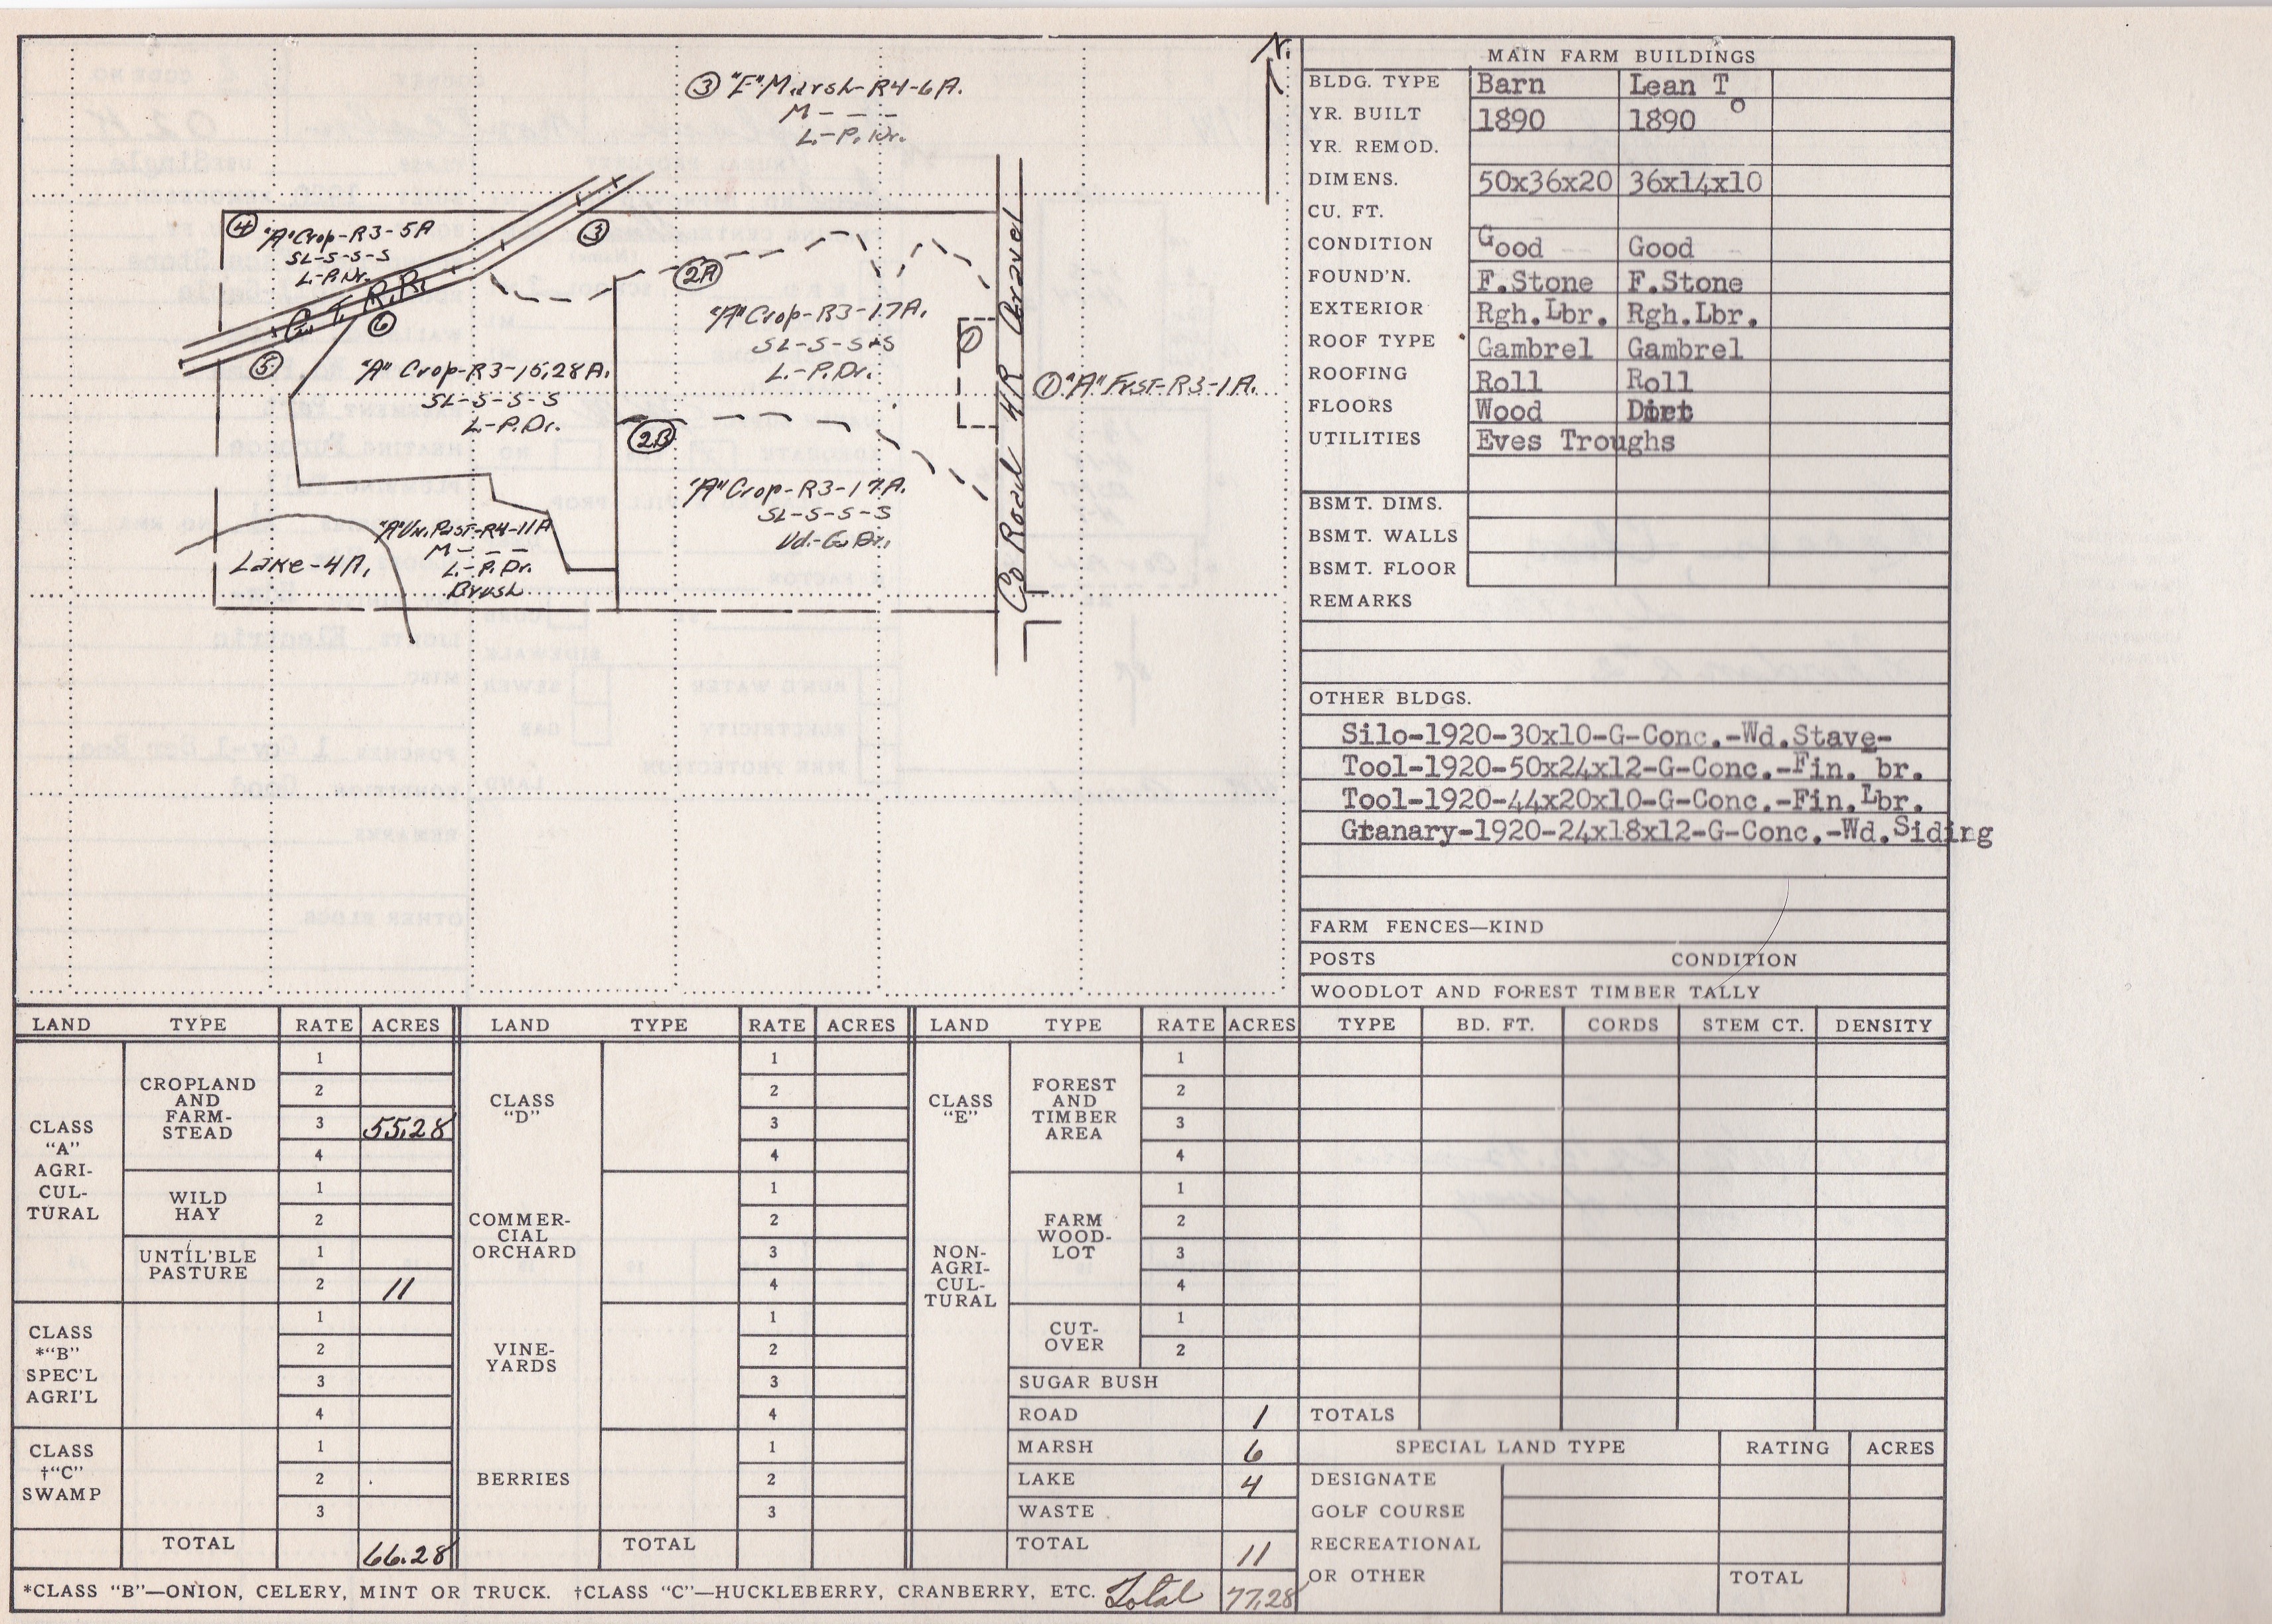 N.
③ "E" Marsh-R4-6A.
M - - -
L-P.Dr.
④ "A" Crop-R3-5A
SL-S-S-S
L-P.Dr.
③
G T R.R.
⑥
⑤
2A
"A" Crop-R3-17A.
SL-S-S-S
L-P.Dr.
①
Co Road 4R Gravel
① "A" Frst-R3-1A.
"A" Crop-R3-15.28A.
SL-S-S-S
L-P.Dr.
2B
"A" Crop-R3-17A.
SL-S-S-S
Ud.-G.Dr.
"A" Un.Past-R4-11A
M - - -
L-P.Dr.
Brush
Lake-4A.
MAIN FARM BUILDINGS
BLDG. TYPE Barn Lean To
YR. BUILT 1890 1890
YR. REMOD.
DIMENS. 50x36x20 36x14x10
CU. FT.
CONDITION Good -- Good --
FOUND'N. F.Stone F.Stone
EXTERIOR Rgh.Lbr. Rgh.Lbr.
ROOF TYPE Gambrel Gambrel
ROOFING Roll Roll
FLOORS Wood Dirt
UTILITIES Eves Troughs
BSMT. DIMS.
BSMT. WALLS
BSMT. FLOOR
REMARKS
OTHER BLDGS.
Silo-1920-30x10-G-Conc.-Wd.Stave-
Tool-1920-50x24x12-G-Conc.-Fin. br.
Tool-1920-44x20x10-G-Conc.-Fin.Lbr.
Granary-1920-24x18x12-G-Conc.-Wd.Siding
FARM FENCES—KIND
POSTS CONDITION
WOODLOT AND FOREST TIMBER TALLY
TYPE BD. FT. CORDS STEM CT. DENSITY
TOTALS
SPECIAL LAND TYPE RATING ACRES
DESIGNATE
GOLF COURSE
RECREATIONAL
OR OTHER TOTAL
LAND TYPE RATE ACRES
CLASS
"A"
AGRI-
CUL-
TURAL
CROPLAND
AND
FARM-
STEAD
1
2
3 55.28
4
WILD
HAY
1
2
UNTIL'BLE
PASTURE
1
2 11
CLASS
*"B"
SPEC'L
AGRI'L
1
2
3
4
CLASS
†"C"
SWAMP
1
2
3
TOTAL 66.28
LAND TYPE RATE ACRES
CLASS
"D"
1
2
3
4
COMMER-
CIAL
ORCHARD
1
2
3
4
VINE-
YARDS
1
2
3
4
BERRIES
1
2
3
TOTAL
LAND TYPE RATE ACRES
CLASS
"E"
NON-
AGRI-
CUL-
TURAL
FOREST
AND
TIMBER
AREA
1
2
3
4
FARM
WOOD-
LOT
1
2
3
4
CUT-
OVER
1
2
SUGAR BUSH
ROAD 1
MARSH 6
LAKE 4
WASTE
TOTAL 11
*CLASS "B"—ONION, CELERY, MINT OR TRUCK. †CLASS "C"—HUCKLEBERRY, CRANBERRY, ETC. Total 77.28